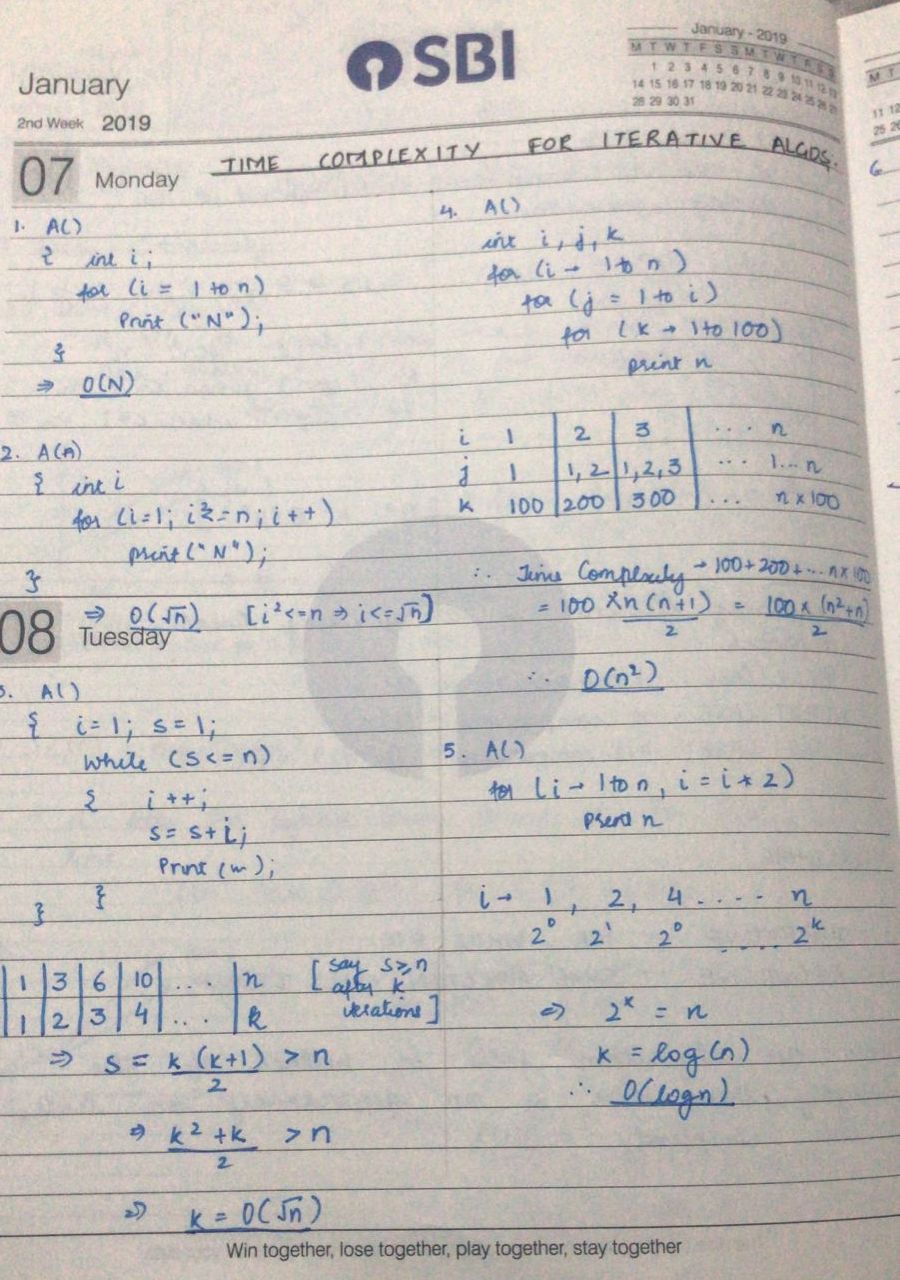 SBI
January - 2019
M T W T F S S M T W T F S S
1 2 3 4 5 6 7 8 9 10 11 12 13
14 15 16 17 18 19 20 21 22 23 24 25 26 27
28 29 30 31
January
2nd Week 2019
07 Monday
TIME COMPLEXITY FOR ITERATIVE ALGOS.
1. A()
{ int i;
for (i = 1 to n)
Print ("N");
}
⇒ O(N)
2. A(n)
{ int i
for (i=1; i²<=n; i++)
print("N");
}
⇒ O(√n) [i²<=n ⇒ i<=√n]
08 Tuesday
3. A()
{ i=1; s=1;
while (s<=n)
{ i++;
s= s+i;
Print (n);
}
}
1 | 3 | 6 | 10 | ... | n
1 | 2 | 3 | 4 | ... | k
[say s>n
after k
iterations]
⇒ s = k(k+1)/2 > n
⇒ k²+k/2 > n
⇒ k = O(√n)
4. A()
int i, j, k
for (i → 1 to n)
for (j = 1 to i)
for (k → 1 to 100)
print n
i 1 | 2 | 3 | .... n
j 1 | 1, 2 | 1, 2, 3 | ... 1...n
k 100 | 200 | 300 | ... n x 100
∴ Time Complexity → 100+200+...n x 100
= 100 x n(n+1)/2 = 100 x (n²+n)/2
∴ O(n²)
5. A()
for (i → 1 to n, i = i * 2)
print n
i → 1, 2, 4 .... n
2⁰ 2¹ 2⁰ .... 2ᵏ
⇒ 2ᵏ = n
k = log(n)
∴ O(logn)
Win together, lose together, play together, stay together
M T
11 12
25 26
6